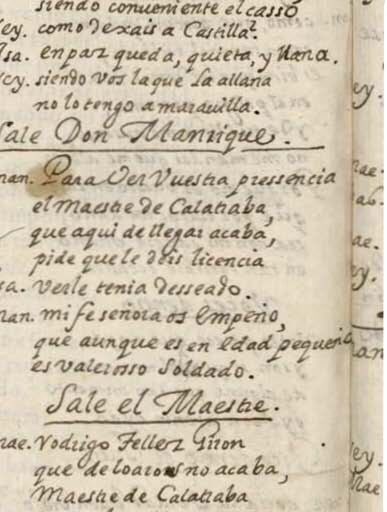 siendo conueniente el casso
Rey. como dexais a Castilla?
Isa. en paz queda, quieta, y llana.
Rey. siendo vos la que La allana
no lo tengo a marauilla.
Sale Don Manrique.
man. Para Ver Vuestra pressencia
el Maestre de Calatraba,
que aqui de llegar acaba,
pide que le deis licencia
Isa. verle tenia desseado.
man. mi fe señora os empeño,
que aunque es en edad pequeño
es valerosso Soldado.
Sale el Maestre.
mae. Rodrigo Tellez Giron
que de loaros no acaba,
Maestre de Calatraba